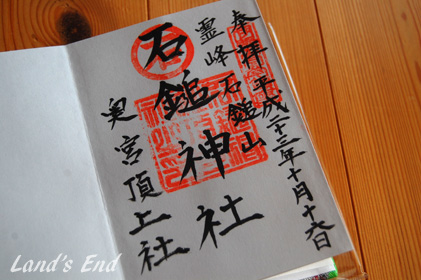 奉拝平成二十三年十月十六日
霊峰石鎚山
石鎚神社
奥宮頂上社
Land's End